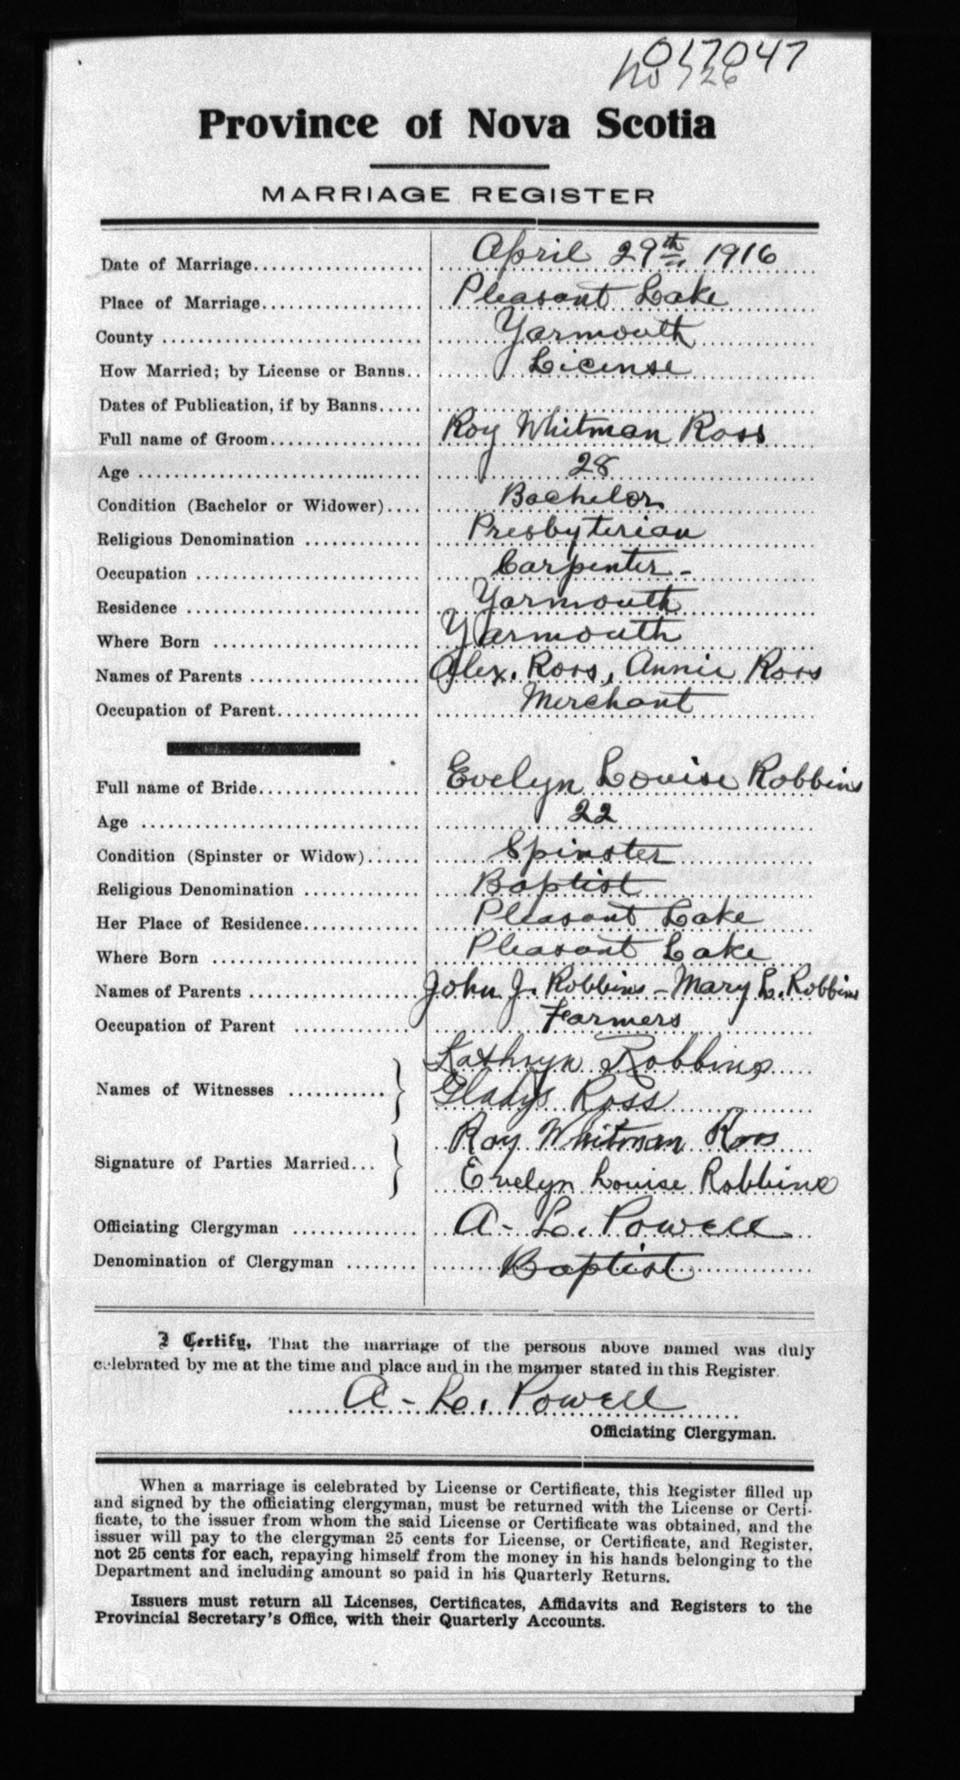 017047
No 726
Province of Nova Scotia
MARRIAGE REGISTER
Date of Marriage.................. April 29th, 1916
Place of Marriage.................. Pleasant Lake
County .................. Yarmouth
How Married; by License or Banns.. License
Dates of Publication, if by Banns.....
Full name of Groom.................. Roy Whitman Ross
Age .................. 28
Condition (Bachelor or Widower).... Bachelor
Religious Denomination .................. Presbyterian
Occupation .................. Carpenter -
Residence .................. Yarmouth
Where Born .................. Yarmouth
Names of Parents .................. Alex. Ross, Annie Ross
Occupation of Parent.................. Merchant
Full name of Bride.................. Evelyn Louise Robbins
Age .................. 22
Condition (Spinster or Widow)...... Spinster
Religious Denomination .................. Baptist
Her Place of Residence.................. Pleasant Lake
Where Born .................. Pleasant Lake
Names of Parents .................. John J. Robbins - Mary L. Robbins
Occupation of Parent .................. Farmers
Names of Witnesses .................. } Kathryn Robbins
Gladys Ross
Signature of Parties Married... } Roy Whitman Ross
Evelyn Louise Robbins
Officiating Clergyman .................. A - L. Powell
Denomination of Clergyman ........ Baptist
I Certify, That the marriage of the persons above named was duly
celebrated by me at the time and place and in the manner stated in this Register.
A - L. Powell
Officiating Clergyman.
When a marriage is celebrated by License or Certificate, this Register filled up
and signed by the officiating clergyman, must be returned with the License or Certi-
ficate, to the issuer from whom the said License or Certificate was obtained, and the
issuer will pay to the clergyman 25 cents for License, or Certificate, and Register,
not 25 cents for each, repaying himself from the money in his hands belonging to the
Department and including amount so paid in his Quarterly Returns.
Issuers must return all Licenses, Certificates, Affidavits and Registers to the
Provincial Secretary's Office, with their Quarterly Accounts.